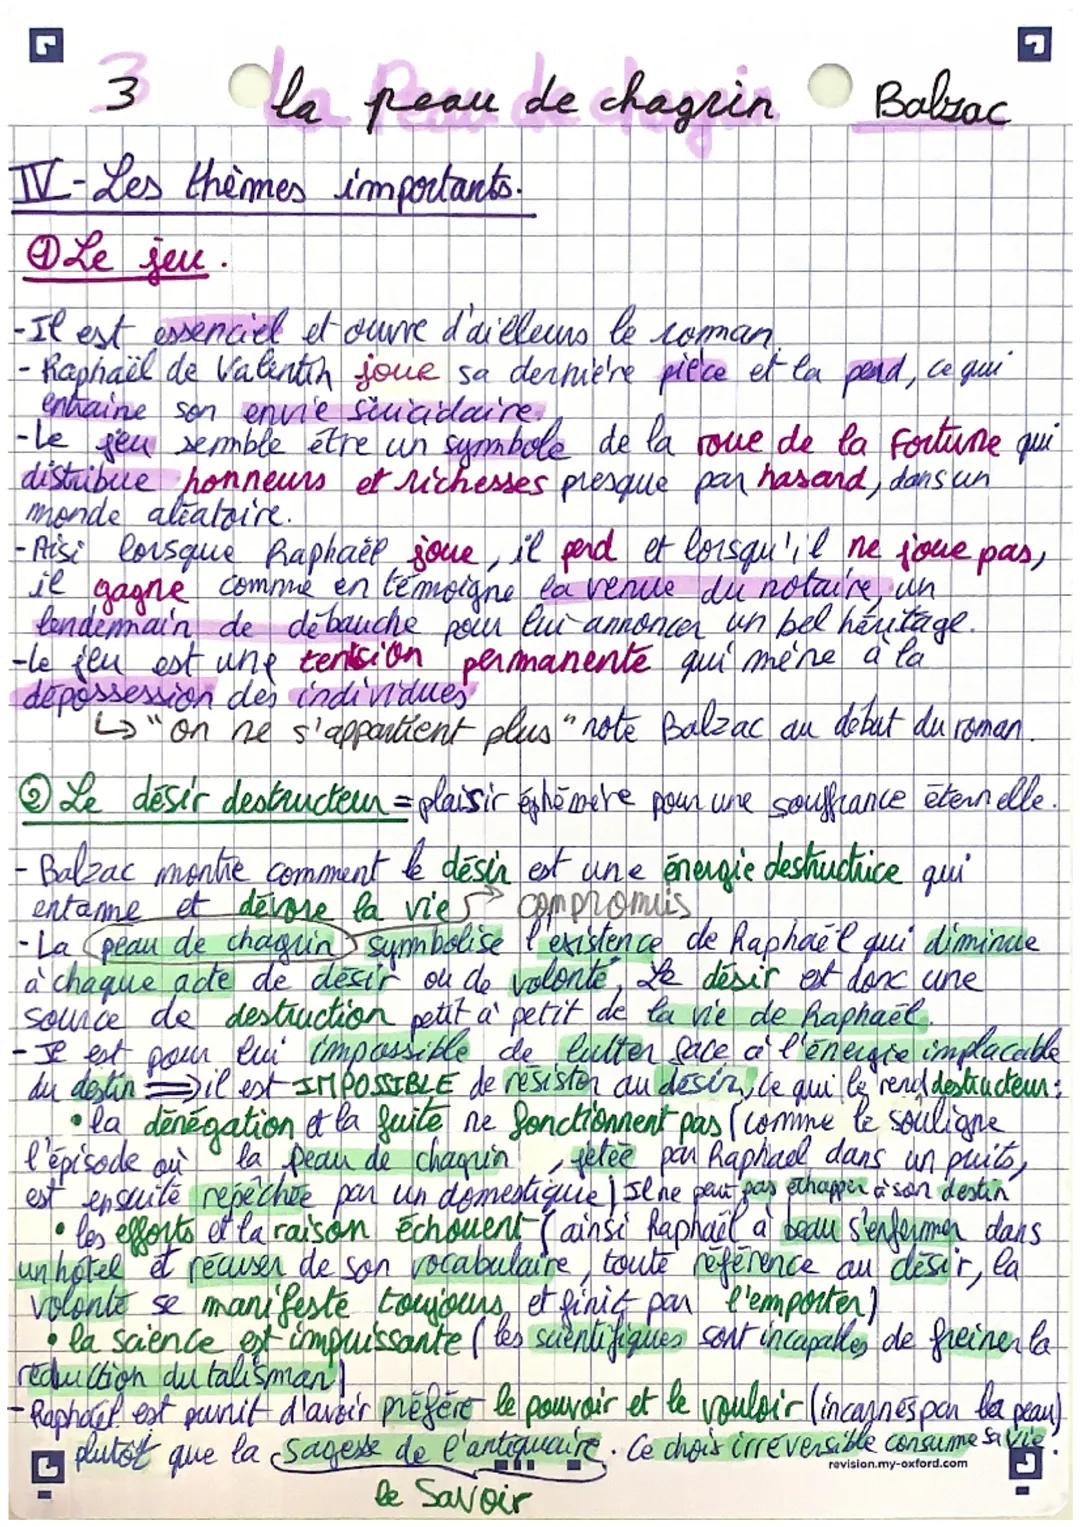 3 la peau de chagrin Balzac
IV-Les thèmes importants.
① Le jeu.
-Il est essenciel et ouvre d'ailleurs le roman.
- Raphaël de Valentin joue sa dernière pièce et la perd, ce qui
entraine son envie suicidaire.
-Le jeu semble être un symbole de la roue de la Fortune qui
distribue honneurs et richesses presque par hasard, dans un
monde aléatoire.
-Aisi lorsque Raphaël joue, il perd et lorsqu'il ne joue pas,
il gagne comme en témoigne la venue du notaire, un
lendemain de débauche pour lui annoncer un bel héritage.
-le jeu est une tension permanente qui mène à la
dépossession des individues
↳ "on ne s'appartient plus" note Balzac au début du roman.
② Le désir destructeur = plaisir éphémère pour une souffrance éternelle.
- Balzac montre comment le désir est une énergie destructrice qui
entame et dévore la vie → compromis
-La peau de chagrin symbolise l'existence de Raphaël qui diminue
à chaque acte de désir ou de volonté. Le désir est donc une
source de destruction petit à petit de la vie de Raphaël.
- Il est pour lui impossible de lutter face à l'énergie implacable
du destin ⇒ il est IMPOSSIBLE de résister au désir, ce qui le rend destructeur:
• la dénégation et la fuite ne fonctionnent pas (comme le souligne
l'épisode où la peau de chagrin, jetée par Raphael dans un puits,
est ensuite repêchée par un domestique) Il ne peut pas échapper à son destin
• les efforts et la raison échouent (ainsi Raphaël a beau s'enfermer dans
un hôtel et récuser de son vocabulaire, toute référence au désir, la
volonté se manifeste toujours et finit par l'emporter)
• la science est impuissante (les scientifiques sont incapables de freiner la
réduction du talisman)
-Raphaël est punit d'avoir préféré le pouvoir et le vouloir (incarnés par la peau)
plutôt que la sagesse de l'antiquaire. Ce choix irréversible consume sa vie.
revision.my-oxford.com
le Savoir